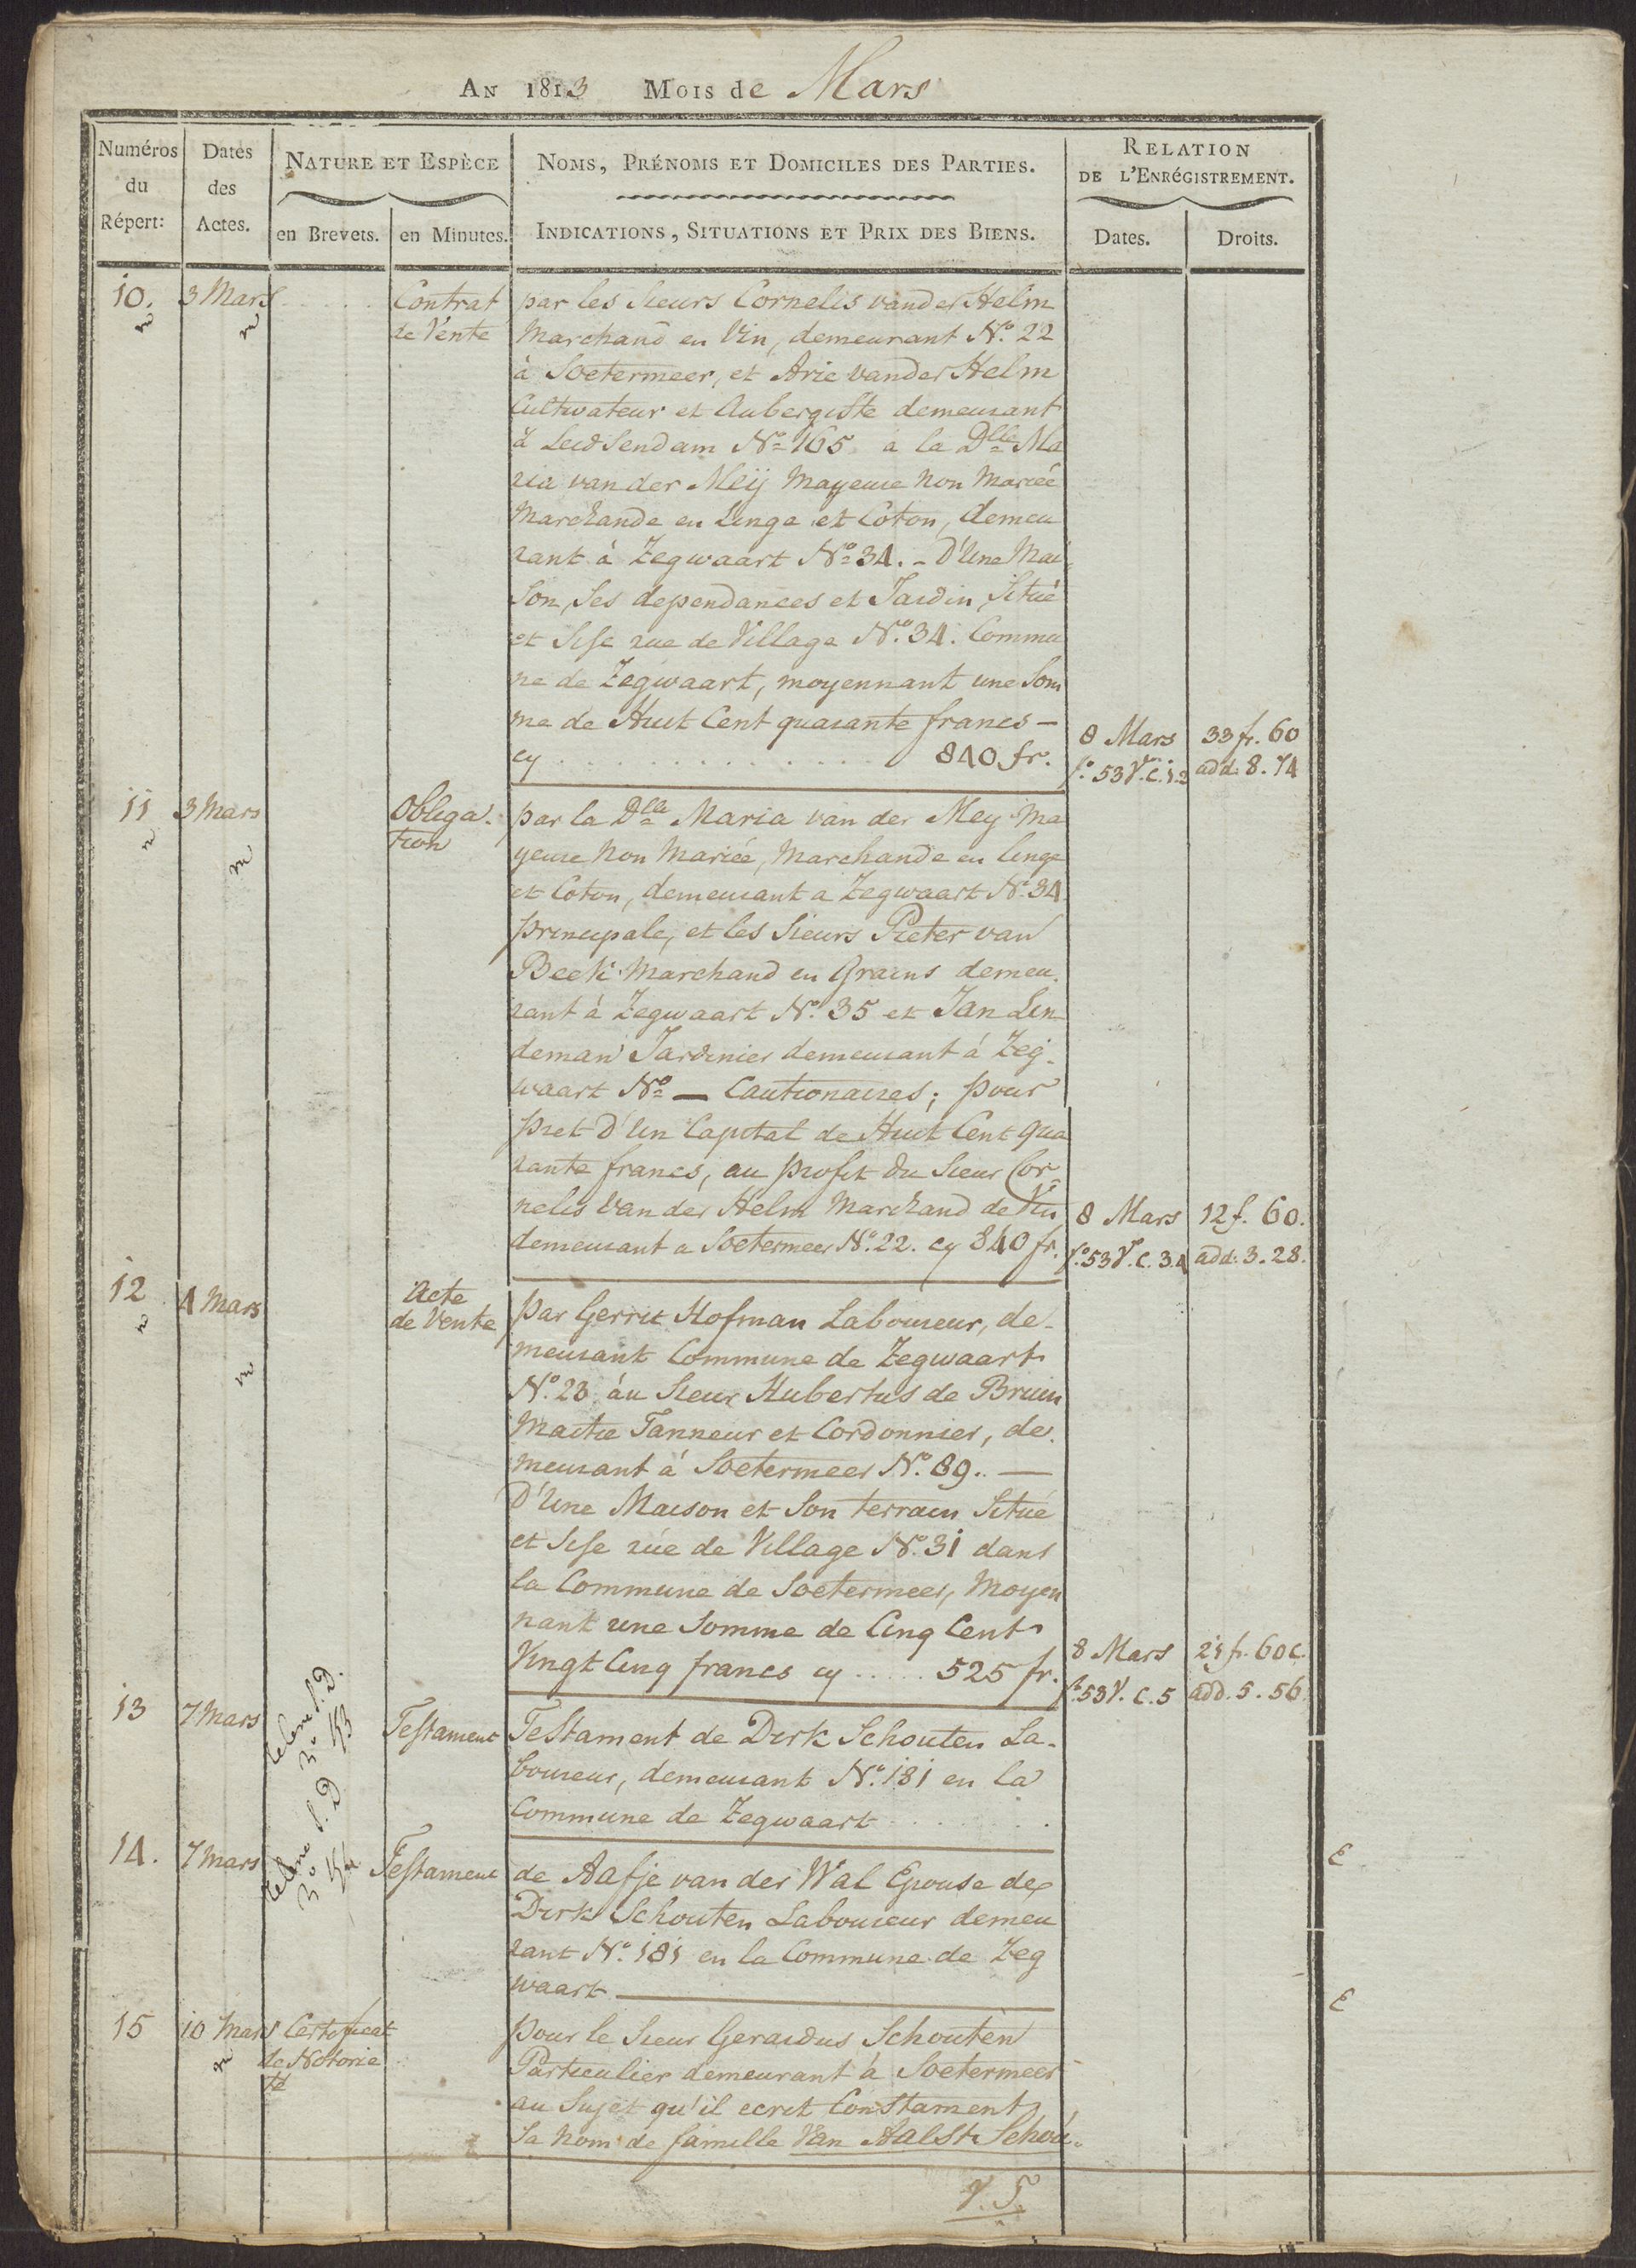 AN 1813 MOIS de Mars
Numéros du Répert:
Dates des Actes.
NATURE ET ESPÈCE
en Brevets. en Minutes.
NOMS, PRÉNOMS ET DOMICILES DES PARTIES.
INDICATIONS, SITUATIONS ET PRIX DES BIENS.
RELATION
DE L'ENRÉGISTREMENT.
Dates. Droits.
10. 3 Mars Contrat par les Sieurs Cornelis vander Helm
de Vente Marchand en Vin, demeurant No. 22
à Soetermeer, et Arie vander Helm
Cultivateur et Aubergiste demeurant
à Leidsendam No 165 a la Dlle Ma
ria van der Meij Mayeure Non Mariée
Marchande en Linge et Coton, demeu
rant à Zegwaart No 34. - D'Une Mai
Son, Ses dependances et Jardin, Situé
et Sise rue de Village No. 34. Commu
ne de Zegwaart, moyennant une Som
me de Huit Cent quarante francs - 8 Mars 33 fr. 60
cy . . . . . . . . . . . . 840 fr. fo. 53 Vo. C. 1.2 add. 8. 74
11 3 Mars Obliga- par la Dlle Maria van der Mey Ma
tion yeure Non Mariée, Marchande en linge
et Coton, demeurant a Zegwaart No. 34
principale, et les Sieurs Pieter van
Beek Marchand en Grains demeu
rant à Zegwaart No. 35 et Jan Lin
deman Jardinier demeurant à Zeg-
waart No — Cautionaires; pour
pret D'Un Capital de Huit Cent qua
rante francs, au profit du Sieur Cor-
nelis Van der Helm Marchand de Vin 8 Mars 12 f. 60.
demeurant a Soetermeer No. 22. cy 840 fr. fo. 53 Vo. C. 3.4 add: 3. 28.
12 4 Mars Acte
de Vente par Gerrit Hofman Laboureur, de-
meurant Commune de Zegwaart
No. 23 áu Sieur Hubertus de Bruin
Maitre Tanneur et Cordonnier, de.
meurant à Soetermeer No. 89. . —
D'Une Maison et Son terrain Situé
et Sise rüe de Village No. 31 dans
la Commune de Soetermeer, Moyen
nant une Somme de Cinq Cent 8 Mars 21 fr. 60 c.
Vingt Cinq francs cy . . . . . 525 fr. fo. 53 V. C. 5 add. 5. 56
13 7 Mars Testament Testament de Dirk Schouten La-
boureur, demeurant No. 181 en la
Commune de Zegwaart . . . . . . . .
14. 7 Mars Testament de Aafje van der Wal Epouse de
Dirk Schouten Laboureur demeu
rant No. 181 en la Commune de Zeg
waart —
15 10 Mars Certificat pour le Sieur Gerardus Schouten
de Notorie Particulier demeurant à Soetermeer
té au Sujet qu'il ecrit Constament
Sa Nom de famille Van Aalst Schou-
V. T.